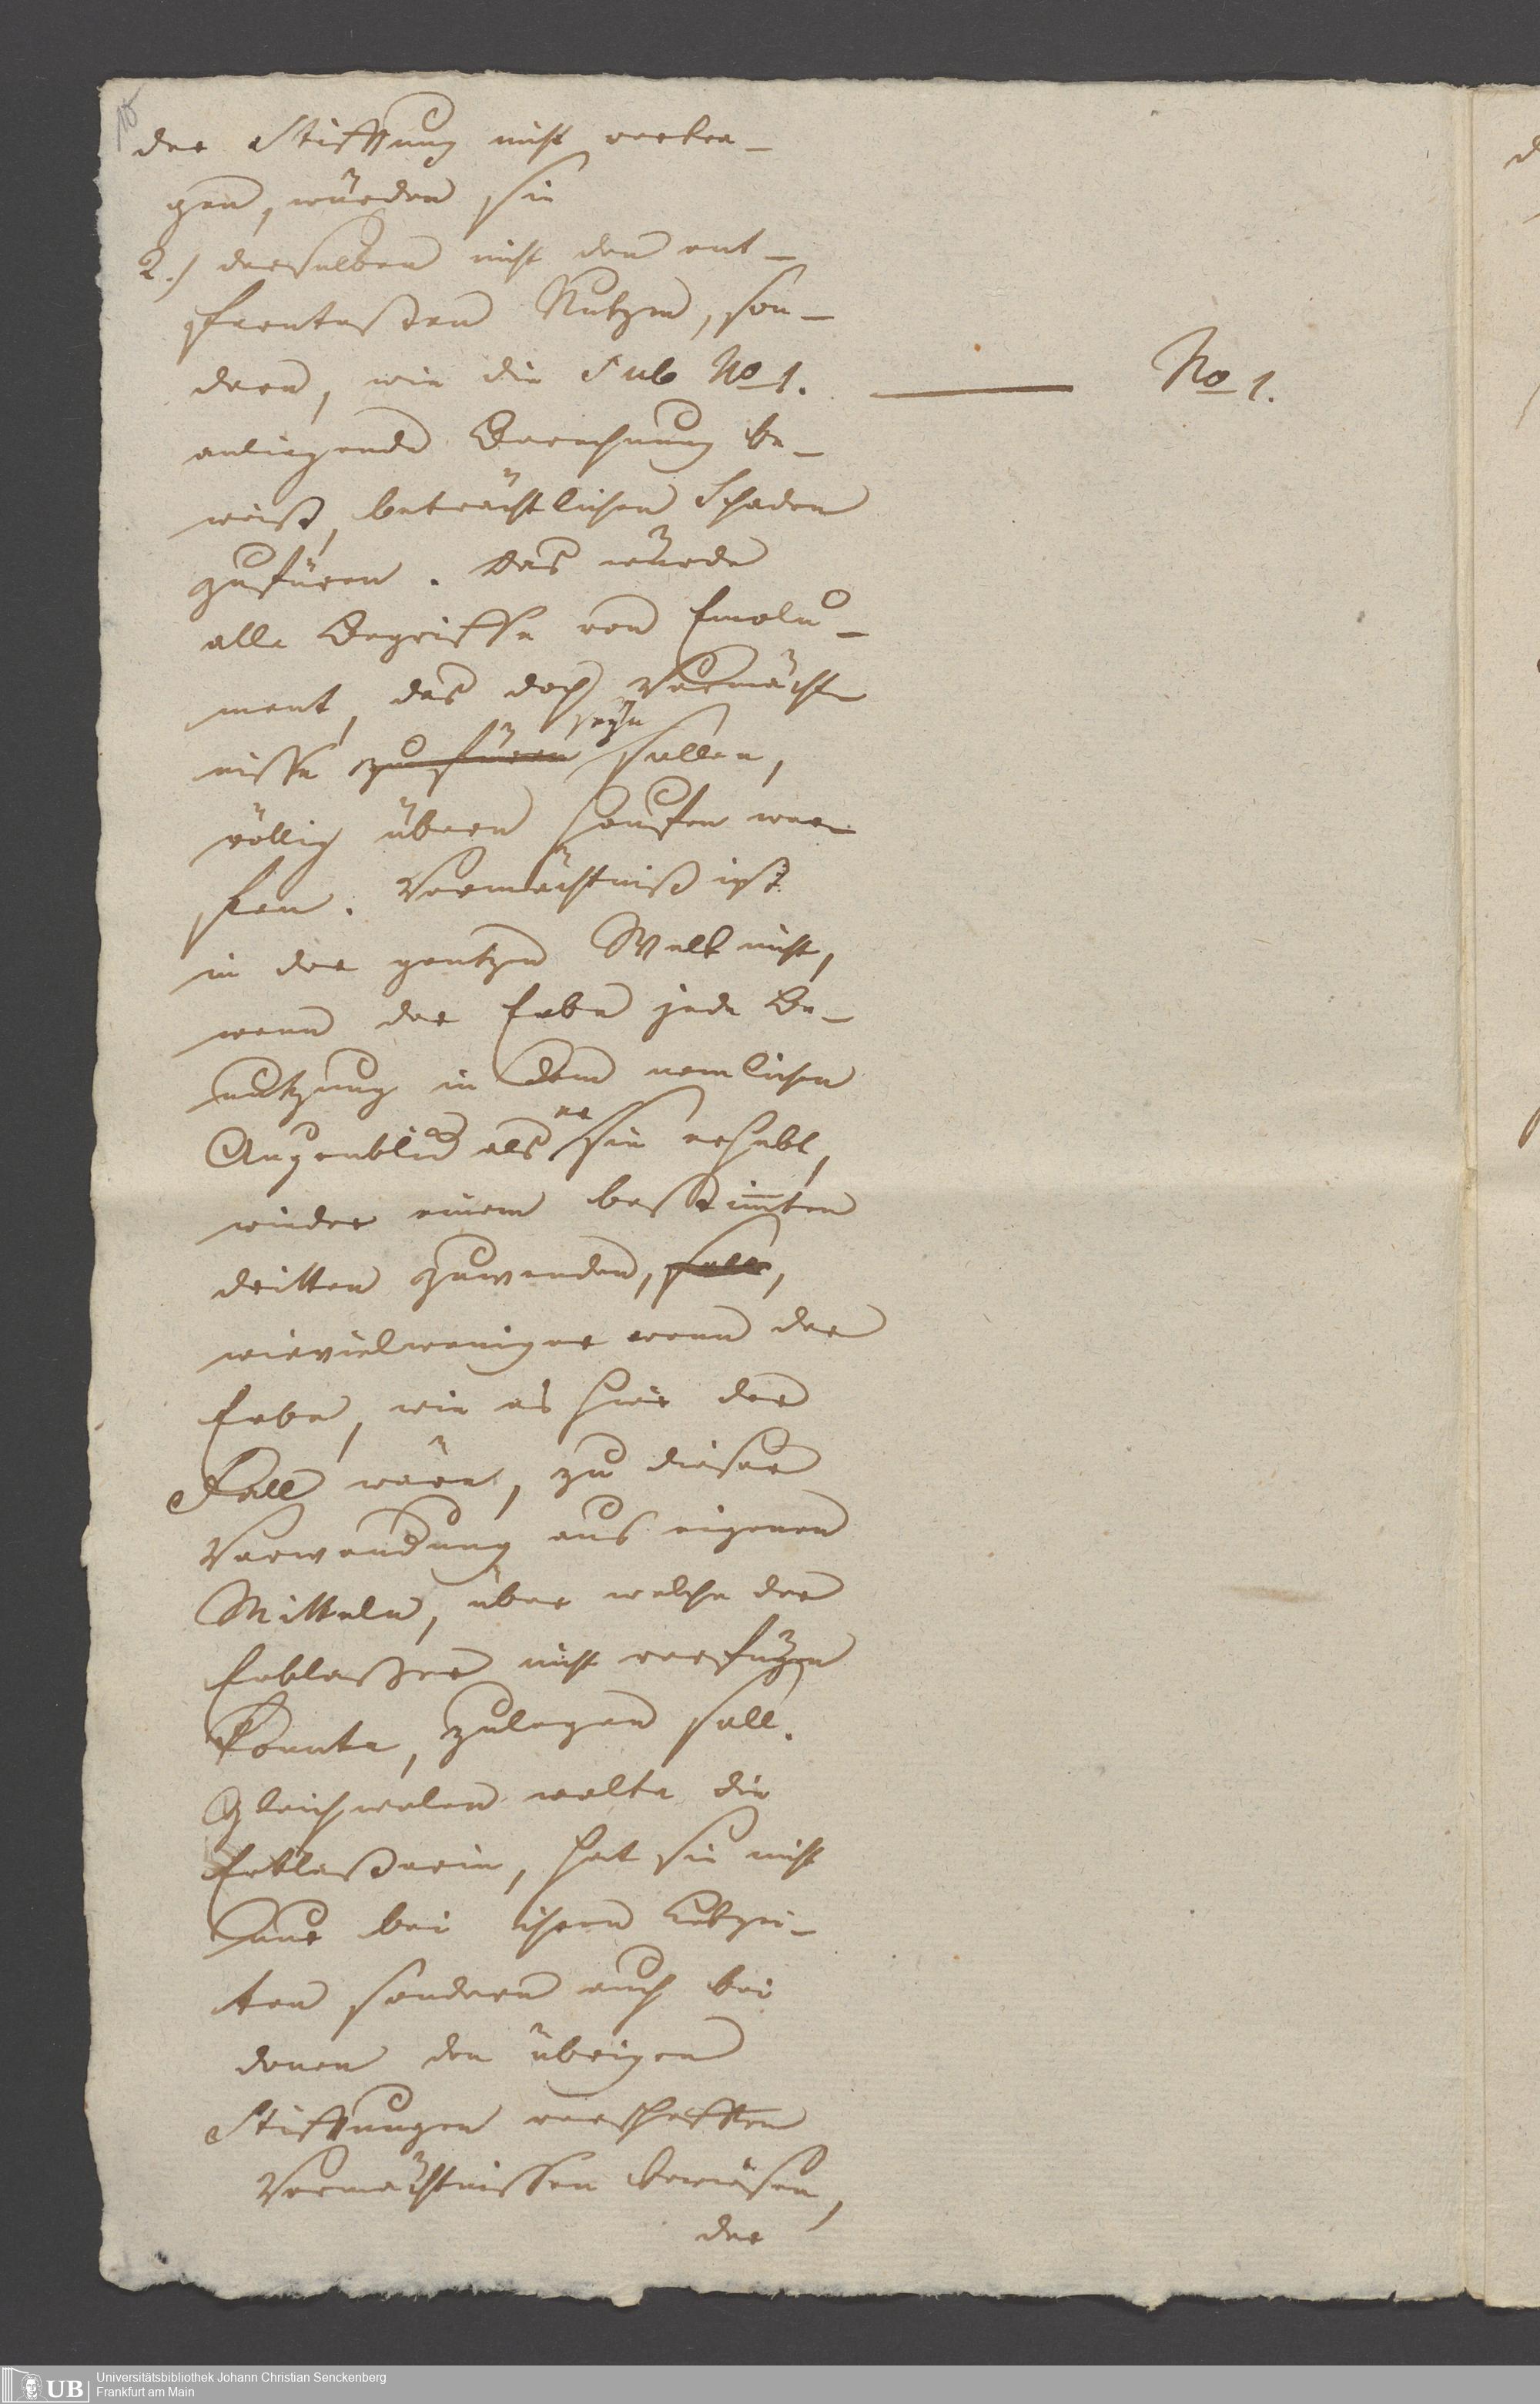 der Stiftung nicht vertra-
gen, würden sie
2.) derselben nicht den ent-
ferntesten Nutzen, son-
dern, wie die Sub No 1.
No 1.
anliegende Berechnung be-
weißt, beträchtlichen Schaden
zufüren. Das würde
alle Begriffe von Emolu-
ment, das doch Vermächt-
nisse zufüren seyn sollen,
völlig übern Haufen wer-
fen. Vermächtniß ist
in der gantzen Welt nicht,
wenn der Erbe jede Be-
nutzung in dem nemlichen
Augenblick als er sie erhebt,
wieder einem bestimten
dritten zuwenden, soll,
wievielweniger wenn der
Erbe, wie es hier der
Fall wäre, zu dieser
Verwendung aus eigenen
Mitteln, über welche der
Erblaßer nicht verfügen
konnte, zulegen soll.
Gleichwolen wolte die
Erblaßerin, hat sie nicht
nur bei ihren Lebzei-
ten sondern auch bei
denen den übrigen
Stiftungen verschafften
Vermächtnissen bewiesen,
der
Universitätsbibliothek Johann Christian Senckenberg
Frankfurt am Main
UB